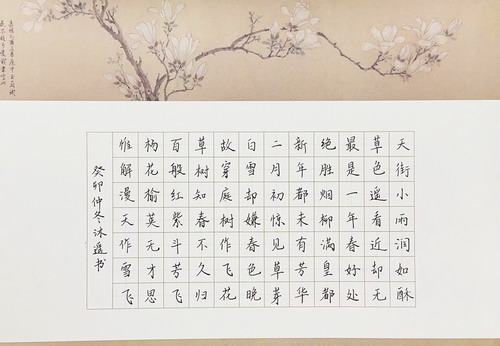 天街小雨润如酥
草色遥看近却无
最是一年春好处
绝胜烟柳满皇都
新年都未有芳华
二月初惊见草芽
白雪却嫌春色晚
故穿庭树作飞花
草树知春不久归
百般红紫斗芳飞
杨花榆荚无才思
惟解漫天作雪飞
癸卯仲冬沐遥书